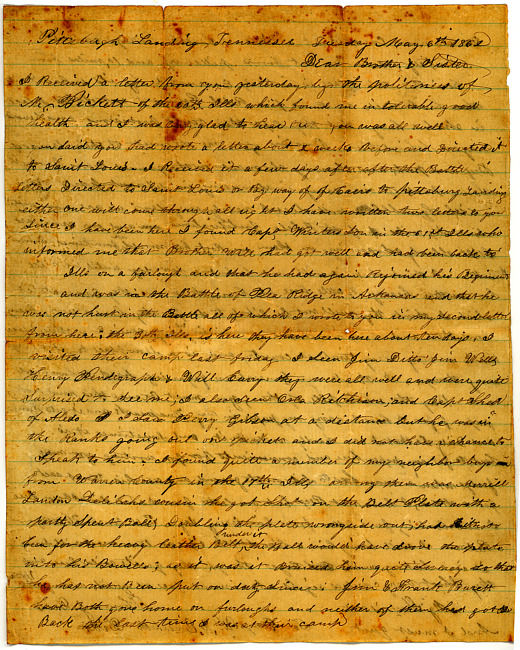 Pittsburgh Landing, Tennessee Tuesday May 6th 1862
Dear Brother & Sister
I Received a letter from you yesterday by the politeness of
Mr Pickett of the 30th Ills which found me in tolerable good
health and I was very glad to hear you was all well
you said you had wrote a letter about 2 weeks before and Directed it
to Saint Louis. I Received it a few days after after the Battle
letters Directed to Saint Louis or By way of of Cairo to pittsburg Landing
either one will come through all right I have written two letters to you
Since I have been here I found Capt Winters Son in the 61st Ills who
informed me that Brother Will had got well and had been back to
Ills on a furlough and that he had again Rejoined his Regiment
and was in the Battle of Pea Ridge in Arkansas and that he
was not hurt in the Battle all of which I wrote to you in my second letter
from here; the 30th Ills. is here they have been here about ten days, I
visited their camp last friday I seen Jim Ditto Jim Wells
Henry & Will they were all well and were quite
Surprised to see me; I also seen Cola and Capt Shed
of Aledo I Saw Henry Gibson at a distance but he was in
the Ranks going out on pickets and I did not have a chance to
Speak to him; I found quite a number of my neighbor boys
from Warren County in the 17th Ills among them was
Landon cousin he got shot on the Belt Plate with a
partly Spent Ball, Doubling the plate wrongside out, had it not
ben for the heavy leather Belt under it the Ball would have drove the plate
in to his Bowels; as it was it Bruised him quite so that
he has not Been put on duty since. Jim & Frank
have Both gone home on furloughs and neither of them had got
Back the last time I was at their camp